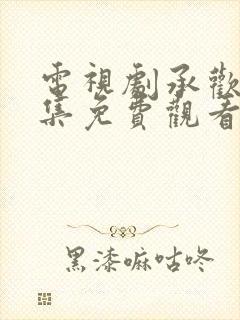 電視劇承歡
集免費觀看
黑漆嘛咕咚